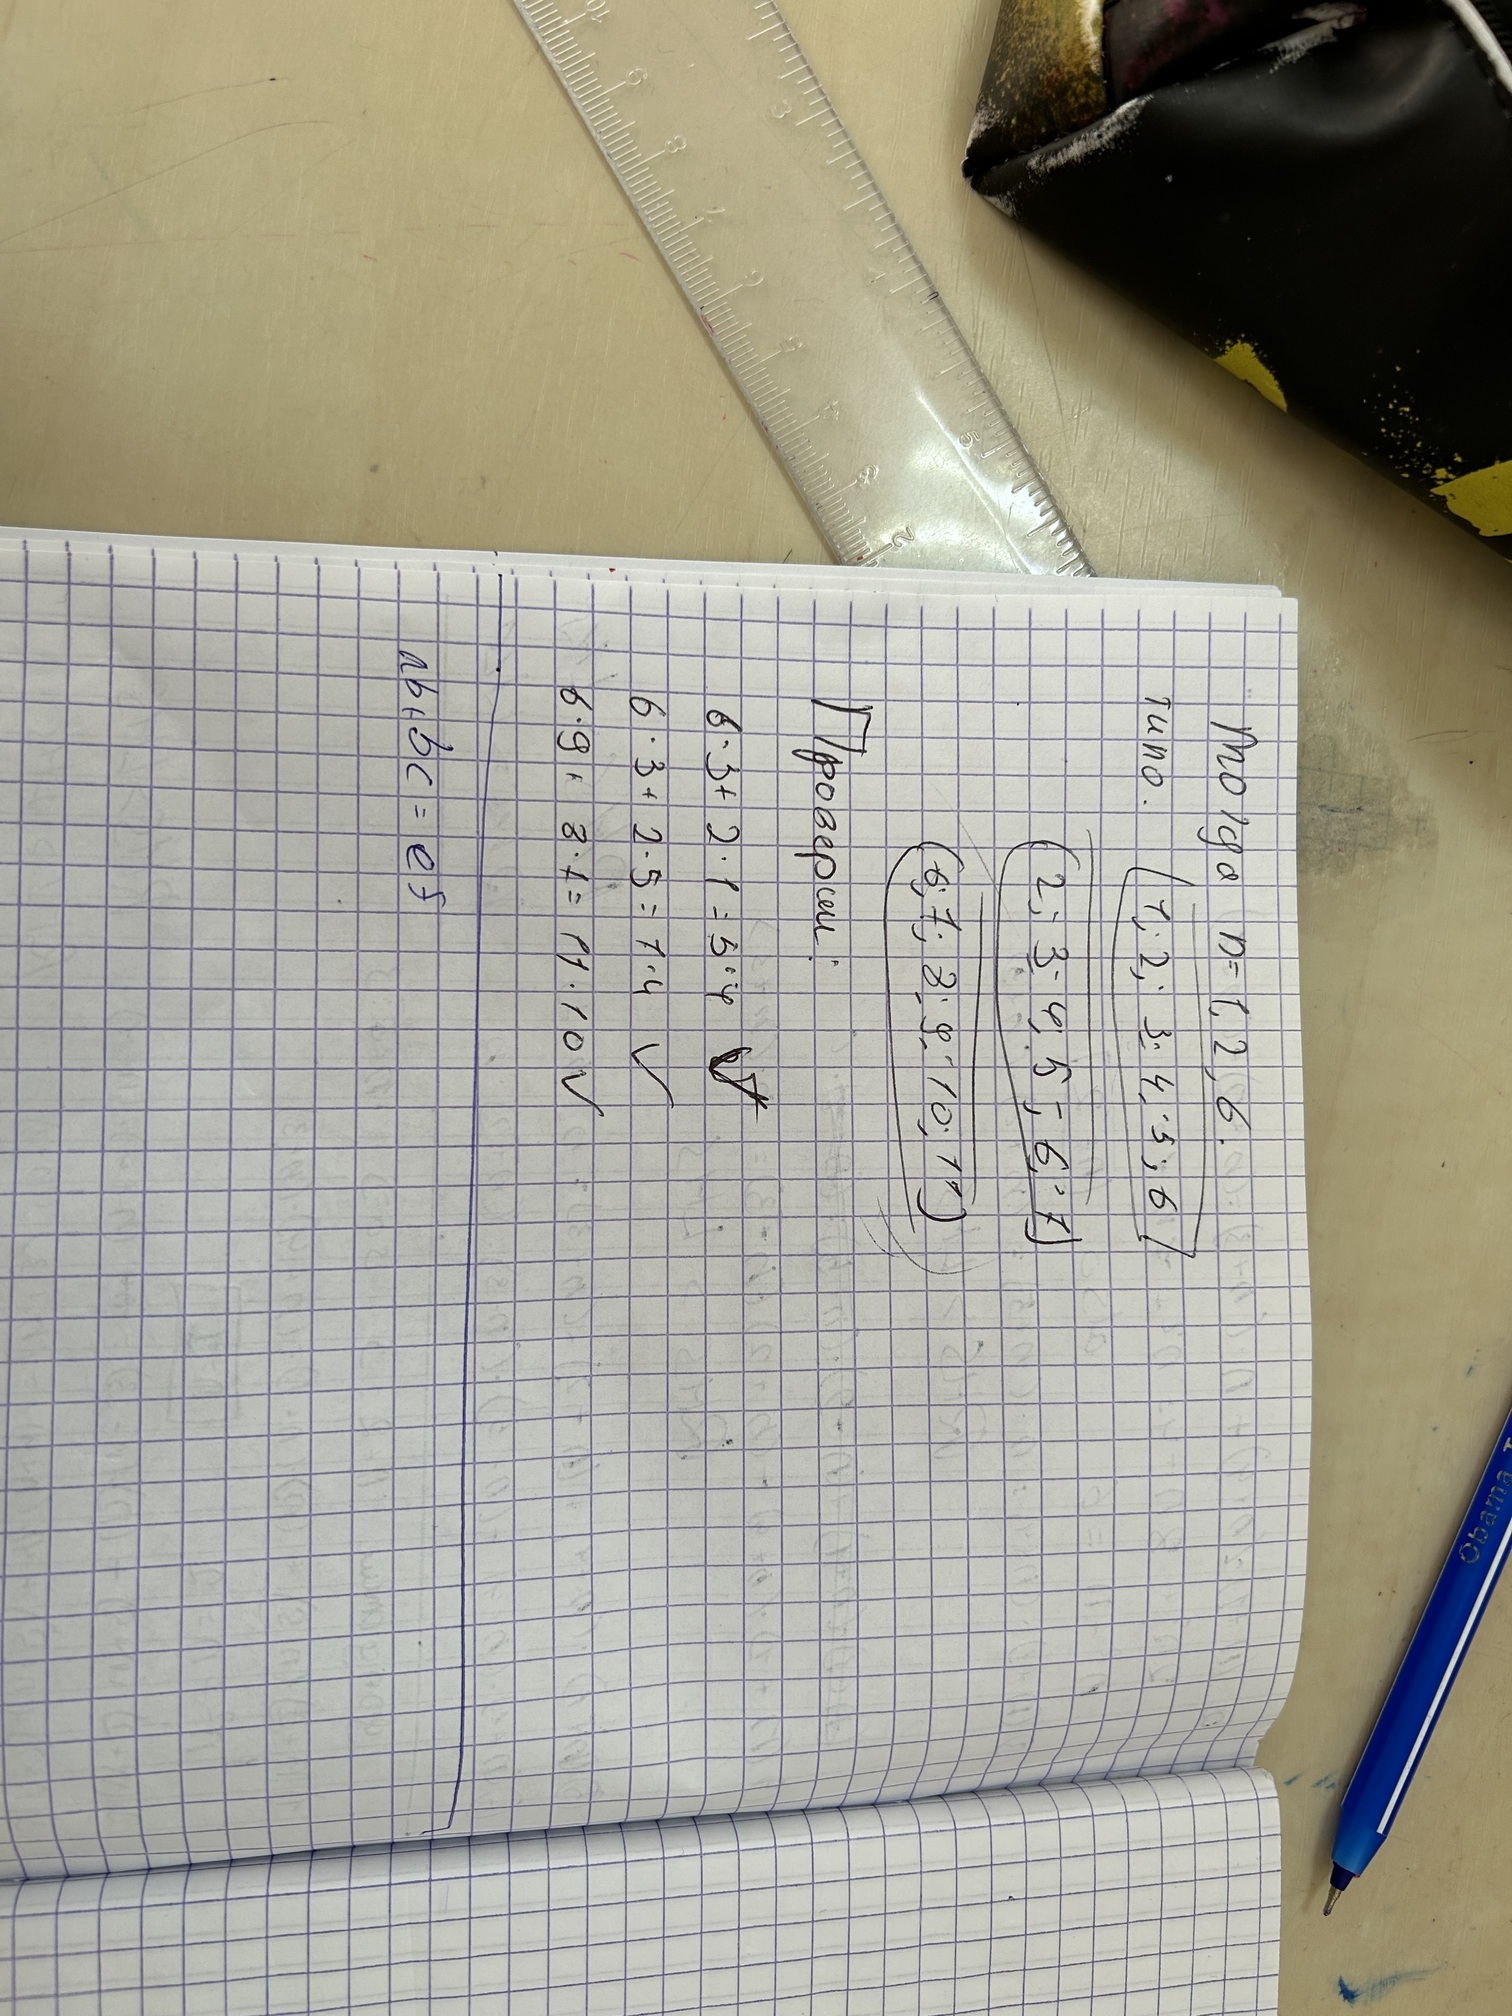 Тогда n=1, 2, 6.
типо. (1; 2; 3; 4; 5; 6)
(2; 3; 4; 5; 6; 7)
(6; 7; 8; 9; 10; 11)
Проверим:
6·3+2·1=5·4
6·3+2·5=7·4 V
6·9+8·7=11·10 V
ab+bc=ef
Obama